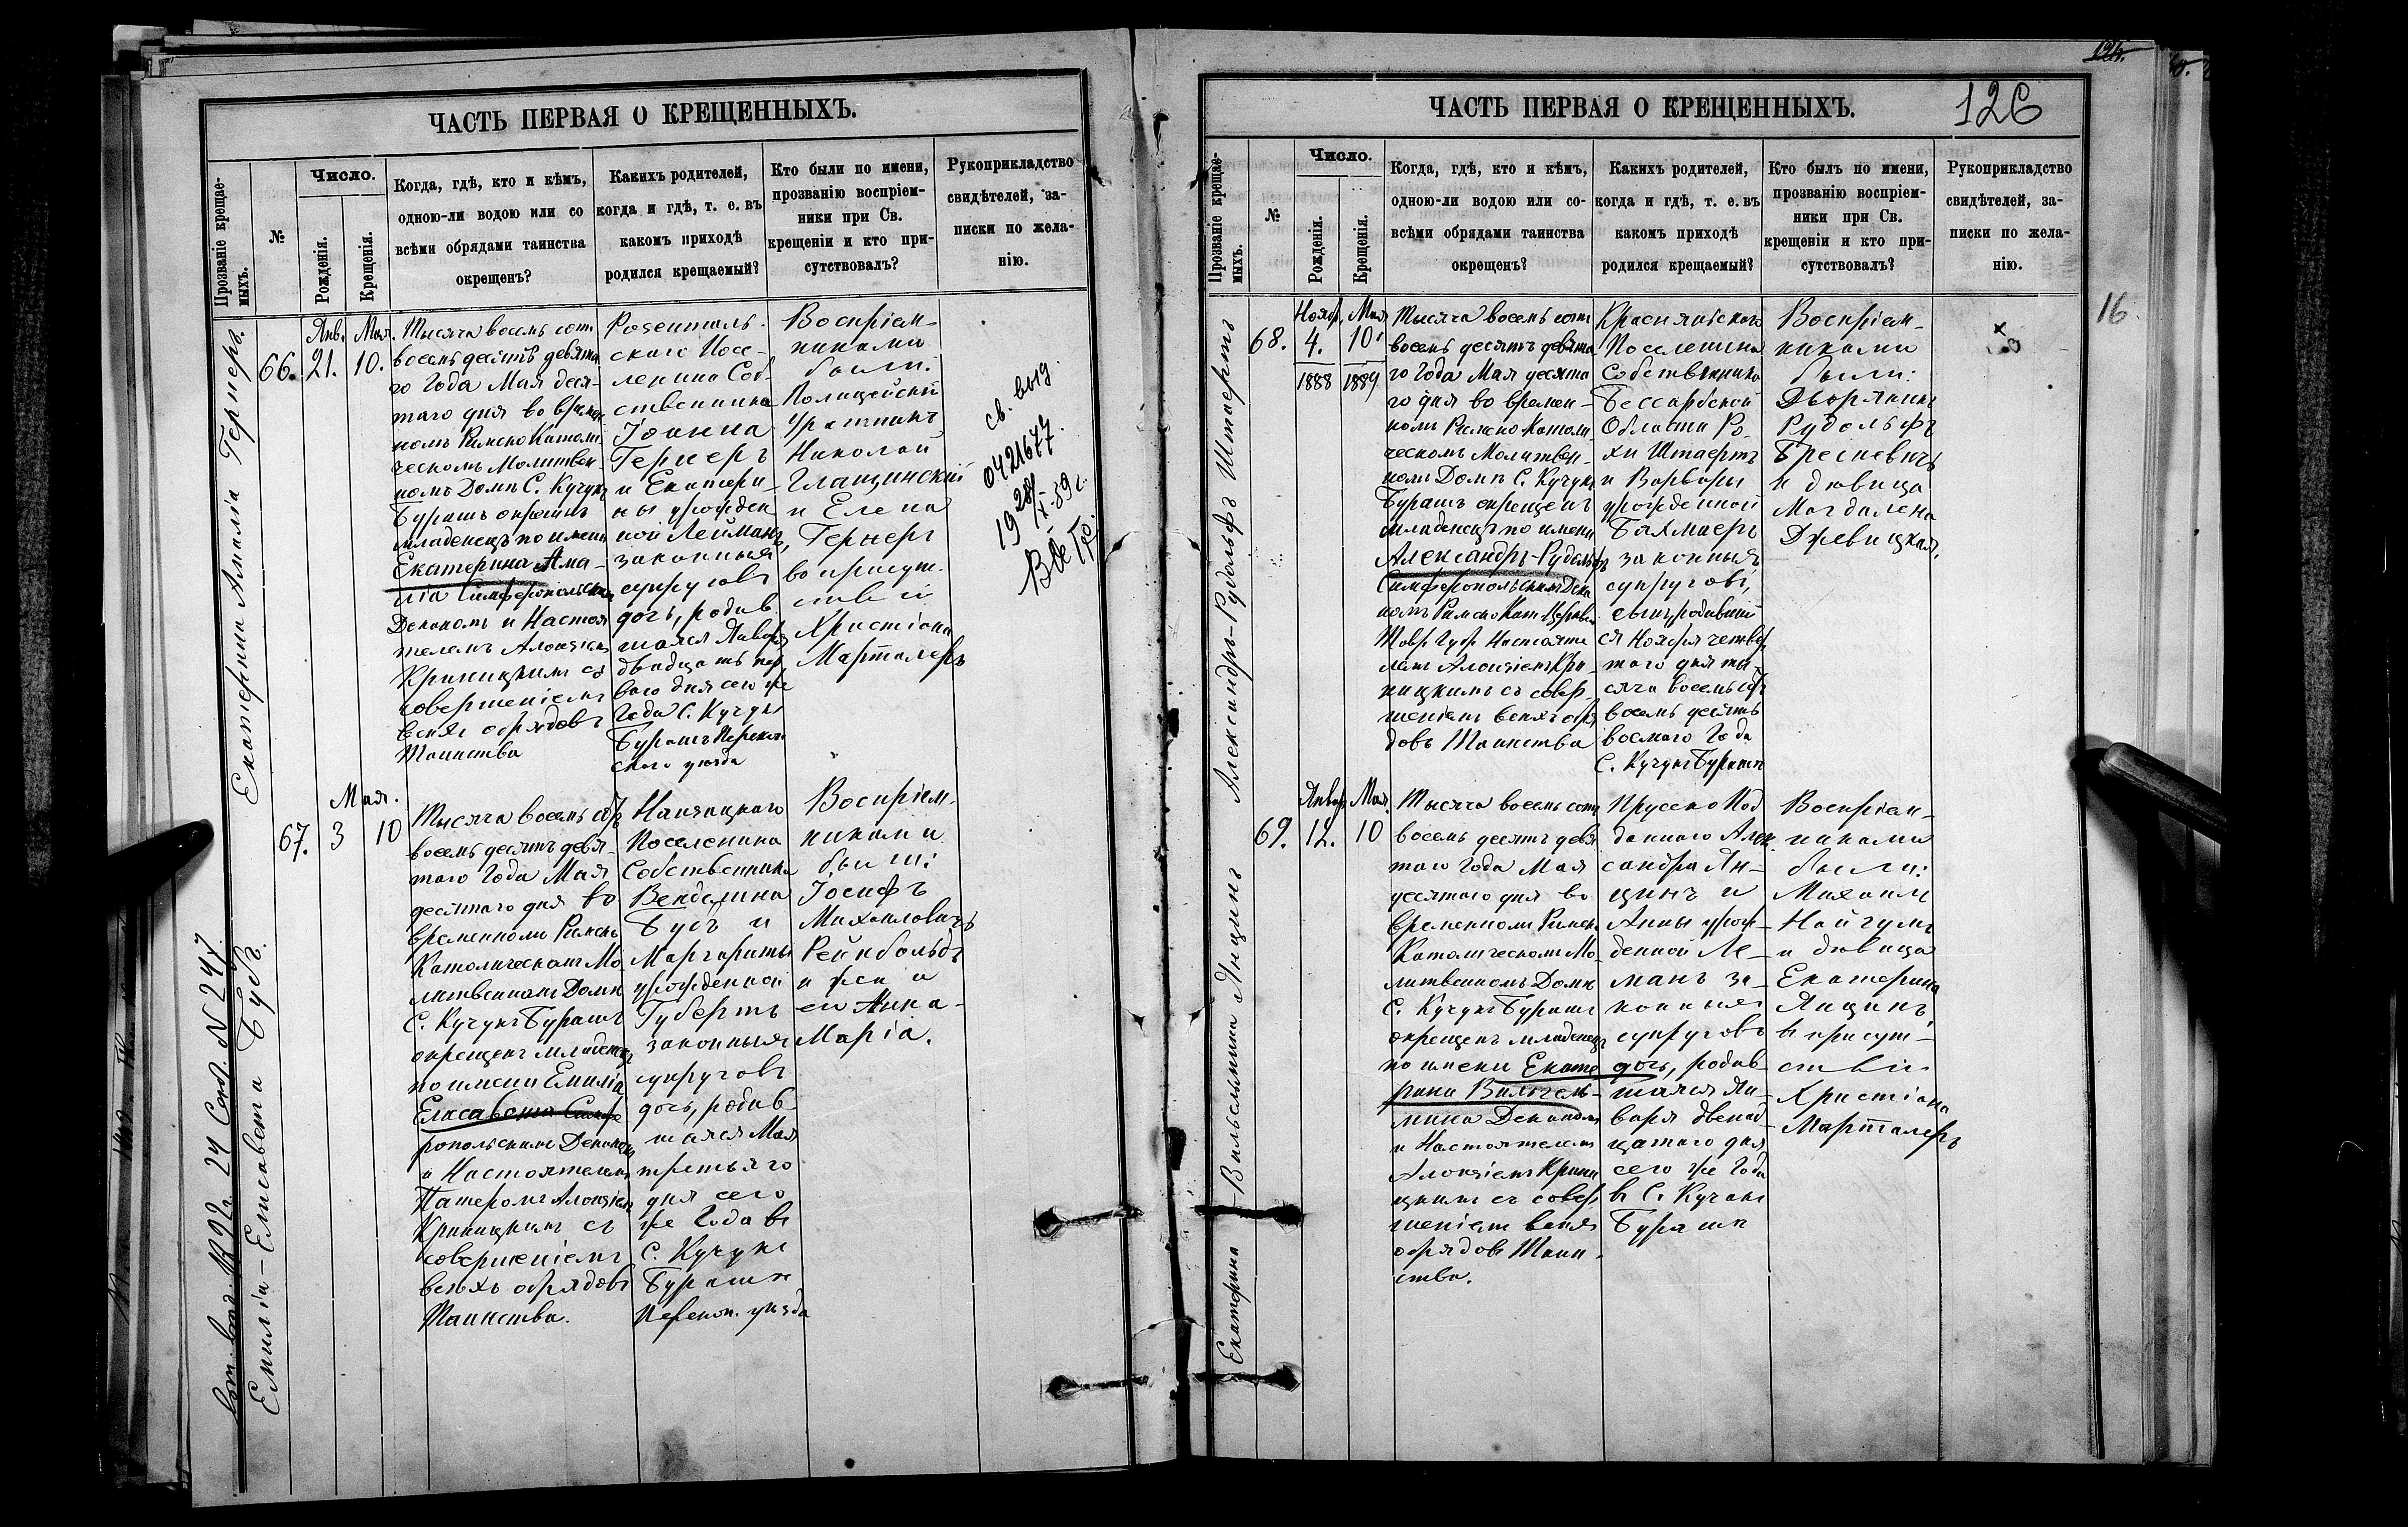 ЧАСТЬ ПЕРВАЯ О КРЕЩЕННЫХЪ.
Прозваніе крещае-
мыхъ.
№
Число.
Рожденія.
Крещенія.
Когда, гдѣ, кто и кѣмъ,
одною-ли водою или со
всѣми обрядами таинства
окрещенъ?
Какихъ родителей,
когда и гдѣ, т. е. въ
какомъ приходѣ
родился крещаемый?
Кто были по имени,
прозванію воспріем-
ники при Св.
крещеніи и кто при-
сутствовалъ?
Рукоприкладство
свидѣтелей, за-
писки по жела-
нію.
Екатерина Амалія Гернеръ.
66.
Янв.
21.
Мая.
10.
Тысяча восемь сотъ
восемьдесятъ девята
го Года Мая деся-
таго дня во времен
номъ Римско Католи
ческомъ Молитвен-
номъ Домѣ С. Кучукъ
Бурашъ окрещенъ
младенецъ по имени
Екатерина Ама-
лія Симферопольскимъ
Деканомъ и Настоя
телемъ Алоизіемъ
Криницкимъ съ
совершеніемъ
всѣхъ обрядовъ
Таинства
Розенталь-
скаго Посе-
ленина Соб-
ственника
Іоанна
Гернеръ
и Екатери-
ны урожден
ной Лейманъ,
законныхъ
супруговъ
дочь, родив
шаяся Января
двадцать пер
ваго дня сего же
Года С. Кучукъ
Бурашъ Перекоп
скаго уѣзда
Воспріем-
никами
были:
Полицейскій
Урядникъ
Николай
Глащинскій
и Елена
Гернеръ
во присут-
ствіи
Христіана
Марталеръ
св. выд.
0421677
1928/IX-59 г.
67.
Мая.
3
10
Емилія-Елисавета Бубъ.
Сот. выд. 1892 г. 24 Сент. N 247.
Тысяча восемь сотъ
восемь десятъ девя-
таго Года Мая
десятаго дня во
временномъ Римско
Католическомъ Мо-
литвенномъ Домѣ
С. Кучукъ Бурашъ
окрещенъ младенецъ
по имени Емилія
Елисавета Симфе
ропольскимъ Деканомъ
и Настоятелемъ
Патеромъ Алоизіемъ
Криницкимъ съ
совершеніемъ
всѣхъ обрядовъ
Таинства.
Поселенина
Собственника
Венделина
Бубъ и
Маргариты
урожденной
Губертъ
законныхъ
супруговъ
дочь, родив-
шаяся Мая
третьяго
дня сего
же Года въ
С. Кучукъ
Бурашъ
Перекоп. уѣзда
Воспріем-
никами
были:
Іосифъ
Михаиловичъ
Рейнбольдъ
и жена
его Анна-
Марія.
ЧАСТЬ ПЕРВАЯ О КРЕЩЕННЫХЪ.
126
16
Прозваніе крещае-
мыхъ.
№
Число.
Рожденія.
Крещенія.
Когда, гдѣ, кто и кѣмъ,
одною-ли водою или со-
всѣми обрядами таинства
окрещенъ?
Какихъ родителей,
когда и гдѣ, т. е. въ
какомъ приходѣ
родился крещаемый?
Кто былъ по имени,
прозванію воспріем-
ники при Св.
крещеніи и кто при-
сутствовалъ?
Рукоприкладство
свидѣтелей, за-
писки по жела-
нію.
Александръ-Рудольфъ Штаертъ
68.
Нояб.
4.
1888
Мая
10.
1889
Тысяча восемь сотъ
восемь десятъ девята
го Года Мая десята
го дня во времен-
номъ Римско Католи-
ческомъ Молитвен-
номъ Домѣ С. Кучукъ
Бурашъ окрещенъ
младенецъ по имени
Александръ-Рудольфъ
Симферопольскимъ Дека
номъ Римско Кат. Церкви
Тавр. Губ. Настояте
лемъ Алоизіемъ Кри-
ницкимъ съ совер-
шеніемъ всѣхъ обря
довъ Таинства
Поселенина
Собственника
Бессарабской
Области Ро-
хи Штаертъ
и Варвары
урожденной
Бахмаеръ
законныхъ
супруговъ,
сынъ, родивший
ся Ноября четвер
таго дня ты-
сяча восемь сотъ
восемь десятъ
восмаго Года
С. Кучукъ Бурашъ
Воспріем-
никами
были:
Дворянинъ
Рудольфъ
Бресневичъ
и дѣвица
Магдалена
Држевицкая.
Екатерина-Вильгельмина Янцинъ
69.
Январ.
12.
Мая.
10
Тысяча восемь сотъ
восемь десятъ девя
таго Года Мая
десятаго дня во
временномъ Римско
Католическомъ Мо-
литвенномъ Домѣ
С. Кучукъ Бурашъ
окрещенъ младенецъ
по имени Екате
рина Вильгель-
мина Деканомъ
и Настоятелемъ
Алоизіемъ Крини
цкимъ съ совер
шеніемъ всѣхъ
обрядовъ Таин-
ства.
Прусско Под
даннаго Алек-
сандра Ян-
цинъ и
Анны урож-
денной Ле-
манъ за-
конныхъ
супруговъ
дочь, родив-
шаяся Ян-
варя двенад-
цатаго дня
сего же Года
въ С. Кучукъ
Бурашъ
Воспріем-
никами
были:
Михаилъ
Найгумъ
и дѣвица
Екатерина
Янцинъ,
въ присут-
ствіи
Христіана
Марталеръ